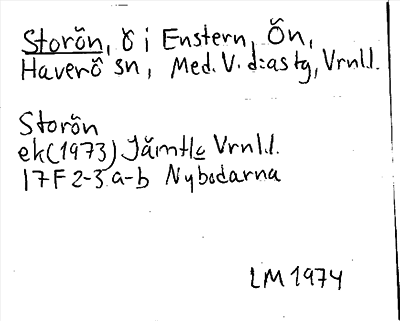 Storön, ö i Enstern, Ön,
Haverö sn, Med. V. d:as tg, Vrnl.l.
Storön
ek(1973) Jämtls Vrnl.l.
17F 2-3 a-b Nybodarna
LM 1974